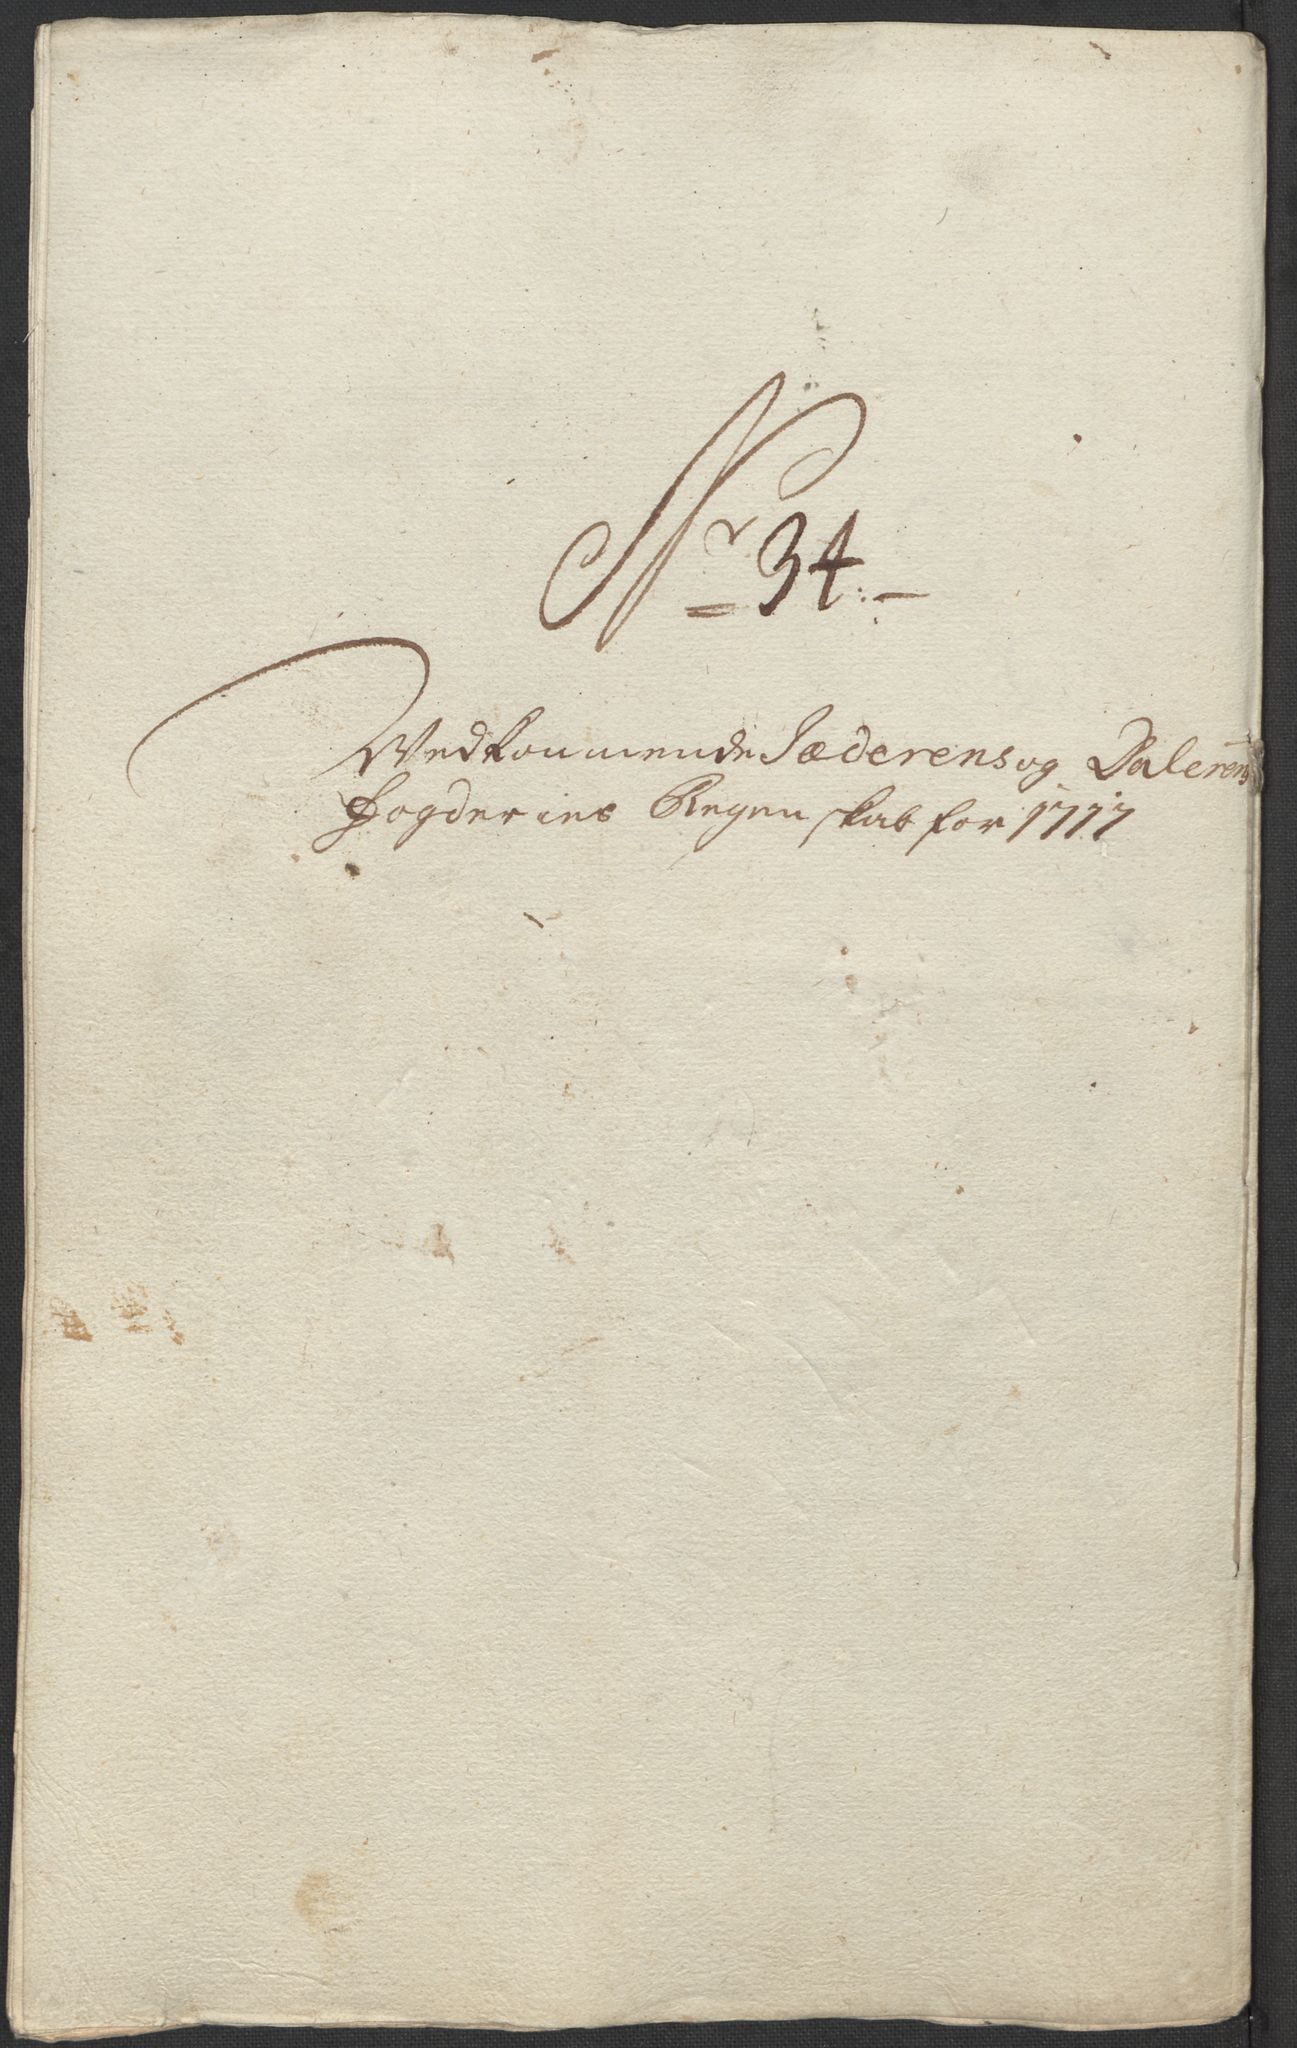 Nr 34.-
Vedkommende Jæderens og Dalerens
fogderies Regenskab for 1717